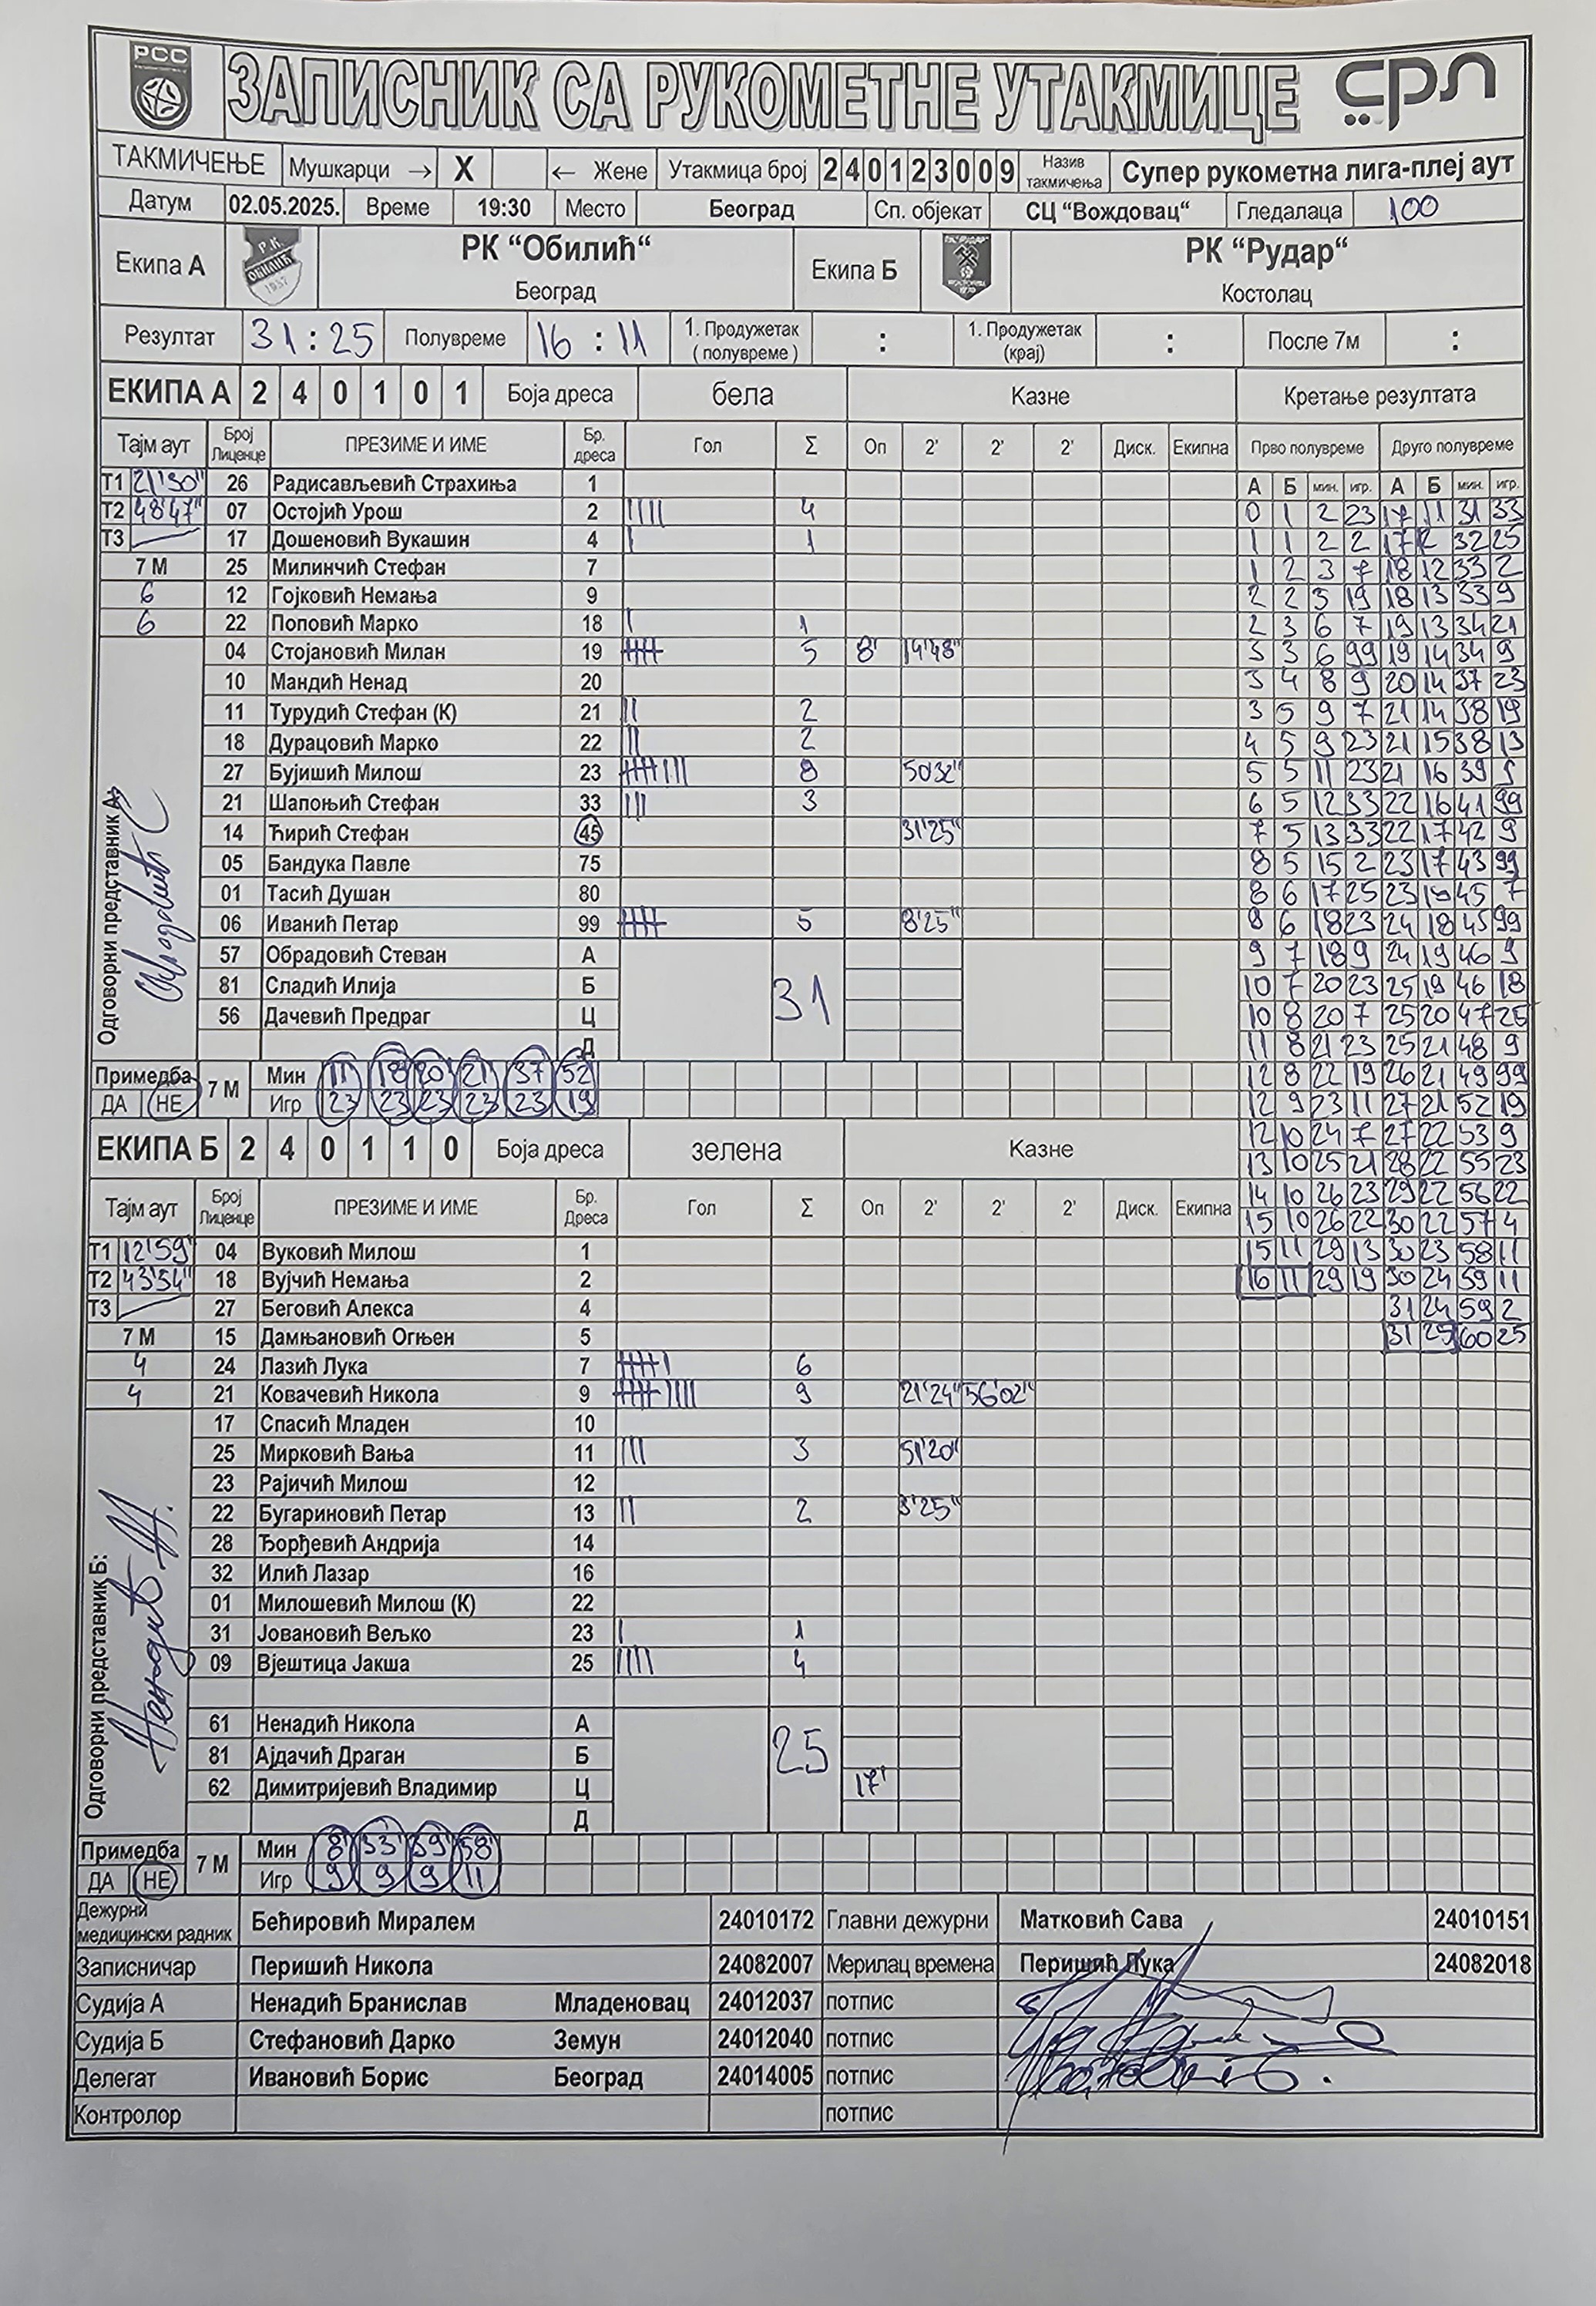 РСС
ЗАПИСНИК СА РУКОМЕТНЕ УТАКМИЦЕ срл
ТАКМИЧЕЊЕ Мушкарци → X ← Жене Утакмица број 2 4 0 1 2 3 0 0 9 Назив такмичења Супер рукометна лига-плеј аут
Датум 02.05.2025. Време 19:30 Место Београд Сп. објекат СЦ "Вождовац“ Гледалаца 100
Екипа А Р.К. ОБИЛИЋ 1937 РК “Обилић“ Београд Екипа Б РК “Рудар“ Костолац
Резултат 31:25 Полувреме 16:11 1. Продужетак (полувреме) : 1. Продужетак (крај) : После 7м :
ЕКИПА А 2 4 0 1 0 1 Боја дреса бела Казне Кретање резултата
Тајм аут Број Лиценце ПРЕЗИМЕ И ИМЕ Бр. дреса Гол Σ Оп 2' 2' 2' Диск. Екипна Прво полувреме Друго полувреме
Т1 21'30" 26 Радисављевић Страхиња 1 А Б мин. игр. А Б мин. игр.
Т2 48'47" 07 Остојић Урош 2 |||| 4 0 1 2 23 17 11 31 33
Т3 17 Дошеновић Вукашин 4 | 1 1 1 2 2 17 12 32 25
7 М 25 Милинчић Стефан 7 1 2 3 7 18 12 33 2
6 12 Гојковић Немања 9 2 2 5 19 18 13 33 9
6 22 Поповић Марко 18 | 1 2 3 6 7 19 13 34 21
04 Стојановић Милан 19 5 8' 14'48" 3 3 6 99 19 14 34 9
10 Мандић Ненад 20 3 4 8 9 20 14 37 23
11 Турудић Стефан (К) 21 || 2 3 5 9 7 21 14 38 19
18 Дурацовић Марко 22 || 2 4 5 9 23 21 15 38 13
27 Бујишић Милош 23 8 50'32" 5 5 11 23 21 16 39 9
21 Шапоњић Стефан 33 ||| 3 6 5 12 33 22 16 41 99
14 Ћирић Стефан 45 31'25" 7 5 13 33 22 17 42 9
05 Бандука Павле 75 8 5 15 2 23 17 43 99
01 Тасић Душан 80 8 6 17 25 23 18 45 7
06 Иванић Петар 99 5 8'25" 8 6 18 23 24 18 45 99
57 Обрадовић Стеван А 9 7 18 9 24 19 46 9
81 Сладић Илија Б 31 10 7 20 23 25 19 46 18
56 Дачевић Предраг Ц 10 8 20 7 25 20 47 25
Д 11 8 21 23 25 21 48 9
Одговорни представник А:
Примедба 7 М Мин 11 18 20 21 37 52 12 8 22 19 26 21 49 99
ДА НЕ Игр 23 23 23 23 23 19 12 9 23 11 27 21 52 19
ЕКИПА Б 2 4 0 1 1 0 Боја дреса зелена Казне 12 10 24 7 27 22 53 9
13 10 25 21 28 22 55 23
Тајм аут Број Лиценце ПРЕЗИМЕ И ИМЕ Бр. Дреса Гол Σ Оп 2' 2' 2' Диск. Екипна 14 10 26 23 29 22 56 22
15 10 26 22 30 22 57 4
Т1 12'59" 04 Вуковић Милош 1 15 11 29 13 30 23 58 11
Т2 43'54" 18 Вујчић Немања 2 16 11 29 19 30 24 59 11
Т3 27 Беговић Алекса 4 31 24 59 2
7 М 15 Дамњановић Огњен 5 31 25 60 25
4 24 Лазић Лука 7 6
4 21 Ковачевић Никола 9 9 21'24" 56'02"
17 Спасић Младен 10
25 Мирковић Вања 11 ||| 3 51'20"
23 Рајичић Милош 12
22 Бугариновић Петар 13 || 2 3'25"
28 Ђорђевић Андрија 14
32 Илић Лазар 16
01 Милошевић Милош (К) 22
31 Јовановић Вељко 23 | 1
09 Вјештица Јакша 25 |||| 4
61 Ненадић Никола А
81 Ајдачић Драган Б 25
62 Димитријевић Владимир Ц 17'
Д
Одговорни представник Б:
Примедба 7 М Мин 8' 33' 39' 58'
ДА НЕ Игр 9 9 9 11
Дежурни медицински радник Бећировић Миралем 24010172 Главни дежурни Матковић Сава 24010151
Записничар Перишић Никола 24082007 Мерилац времена Перишић Лука 24082018
Судија А Ненадић Бранислав Младеновац 24012037 потпис
Судија Б Стефановић Дарко Земун 24012040 потпис
Делегат Ивановић Борис Београд 24014005 потпис
Контролор потпис